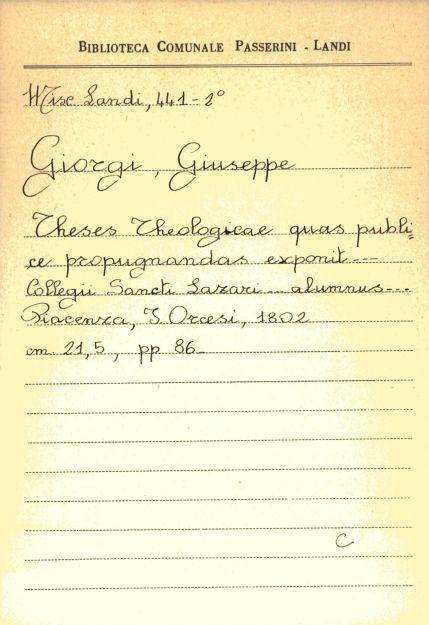 BIBLIOTECA COMUNALE PASSERINI - LANDI
Misc Landi, 441-2º
Giorgi, Giuseppe
Theses Theologicae quas publi=
ce propugnandas exponit ---
Collegii Sancti Lazari --- alumnus ---
Piacenza, I Orcesi, 1802
cm. 21,5, pp 86-
C